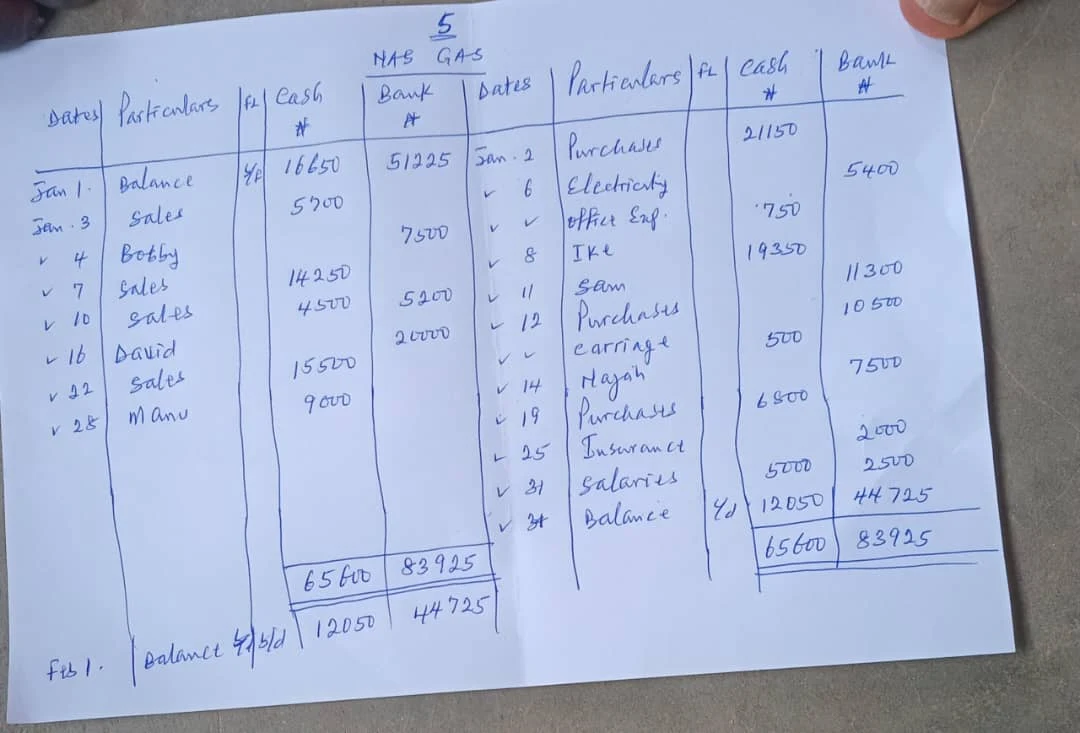 5
NAS GAS
Dates Particulars FL Cash Bank Dates Particulars FL Cash Bank
₦ ₦ ₦ ₦
Jan 1. Balance b/f 16650 51225
Jan. 3 Sales 5700
✓ 4 Bobby 7500
✓ 7 Sales 14250
✓ 10 Sales 4500 5200
✓ 16 David 20000
✓ 22 Sales 15500
✓ 28 Manu 9000
65600 83925
Feb 1. Balance b/d 12050 44725
Jan. 2 Purchases 21150
✓ 6 Electricity 5400
✓ ✓ office Exp. 750
✓ 8 Ike 19350
✓ 11 Sam 11300
✓ 12 Purchases 10500
✓ ✓ carriage 500
✓ 14 Najah 7500
✓ 19 Purchases 6800
✓ 25 Insurance 2000
✓ 31 Salaries 5000 2500
✓ 31 Balance c/d 12050 44725
65600 83925